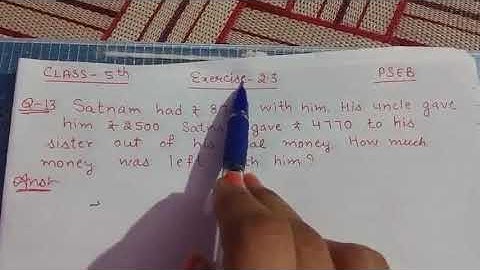 CLASS - 5th Exercise - 2.3 PSEB
Q-13 Satnam had ₹ with him. His uncle gave
him ₹ 2500 gave ₹ 4770 to his
sister out of his money. How much
money was left him?
Ans:-